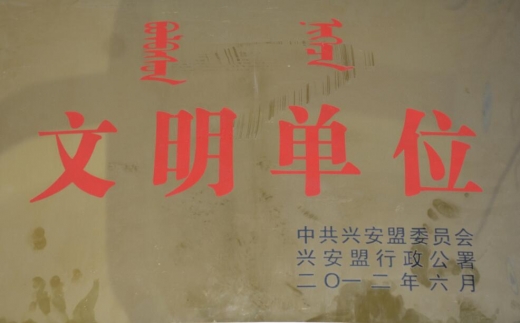 文明单位
中共兴安盟委员会
兴安盟行政公署
二〇一二年六月